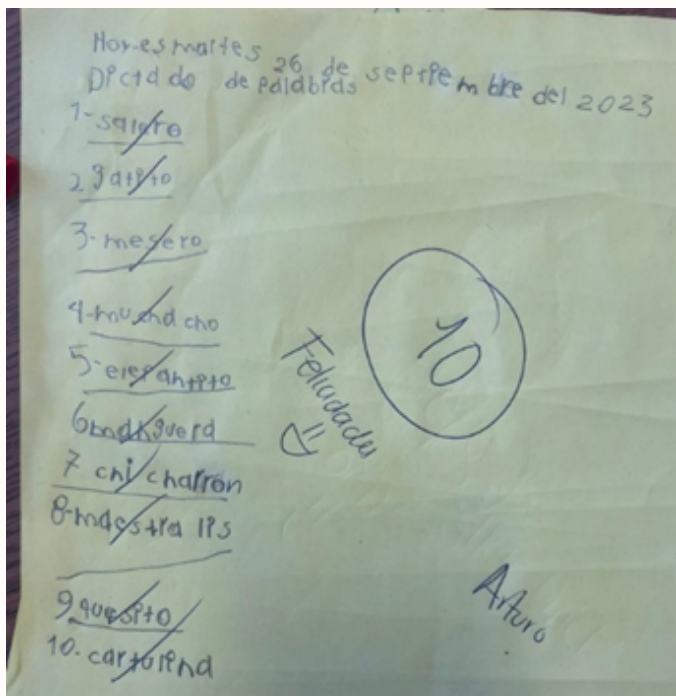 Hoy es martes 26 de septiembre del 2023
Dictado de palabras
1- salero
2 gatito
3- mesero
4- muchacho
5- elefantito
6 manguera
7 chicharron
8- maestra lis
9 quesito
10. cartulina
10
Felicidades
Arturo